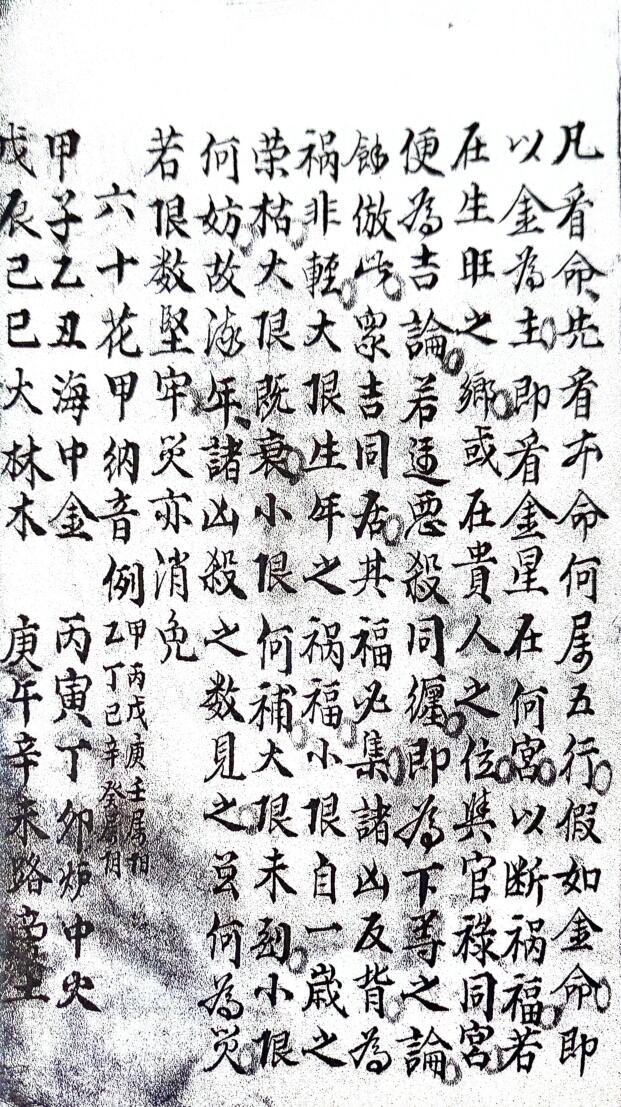 凡看命先看本命何属五行假如金命即
以金為主即看金星在何宮以断禍福若
在生旺之鄉或在貴人之位與官祿同宮
便為吉論若逆惡殺同纏即為下等之論
餘倣此衆吉同居其福必集諸凶反背為
禍非輕大限生年之禍福小限自一歲之
荣枯大限既衰小限何補大限未到小限
何妨故逐年諸凶殺之数見之豈何為災
若限数堅牢災亦消免
六十花甲納音例
甲丙戊庚壬属陽
乙丁己辛癸属陰
甲子乙丑海中金 丙寅丁卯炉中火
戊辰己巳大林木 庚午辛未路旁土